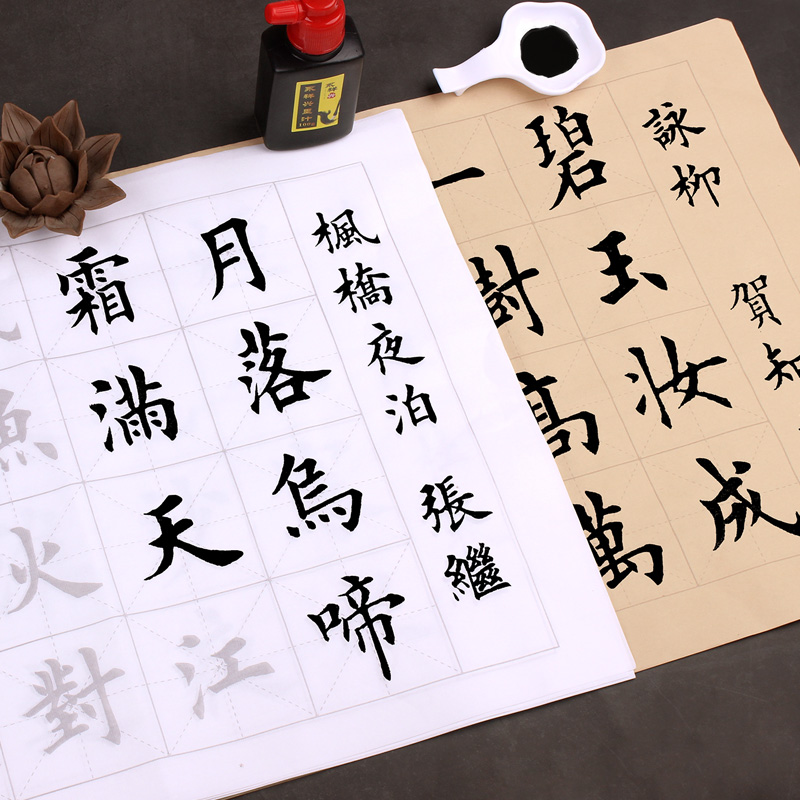 楓橋夜泊 張繼
月落烏啼
霜滿天江
火對
詠柳 賀知
碧玉妝成
一樹高萬